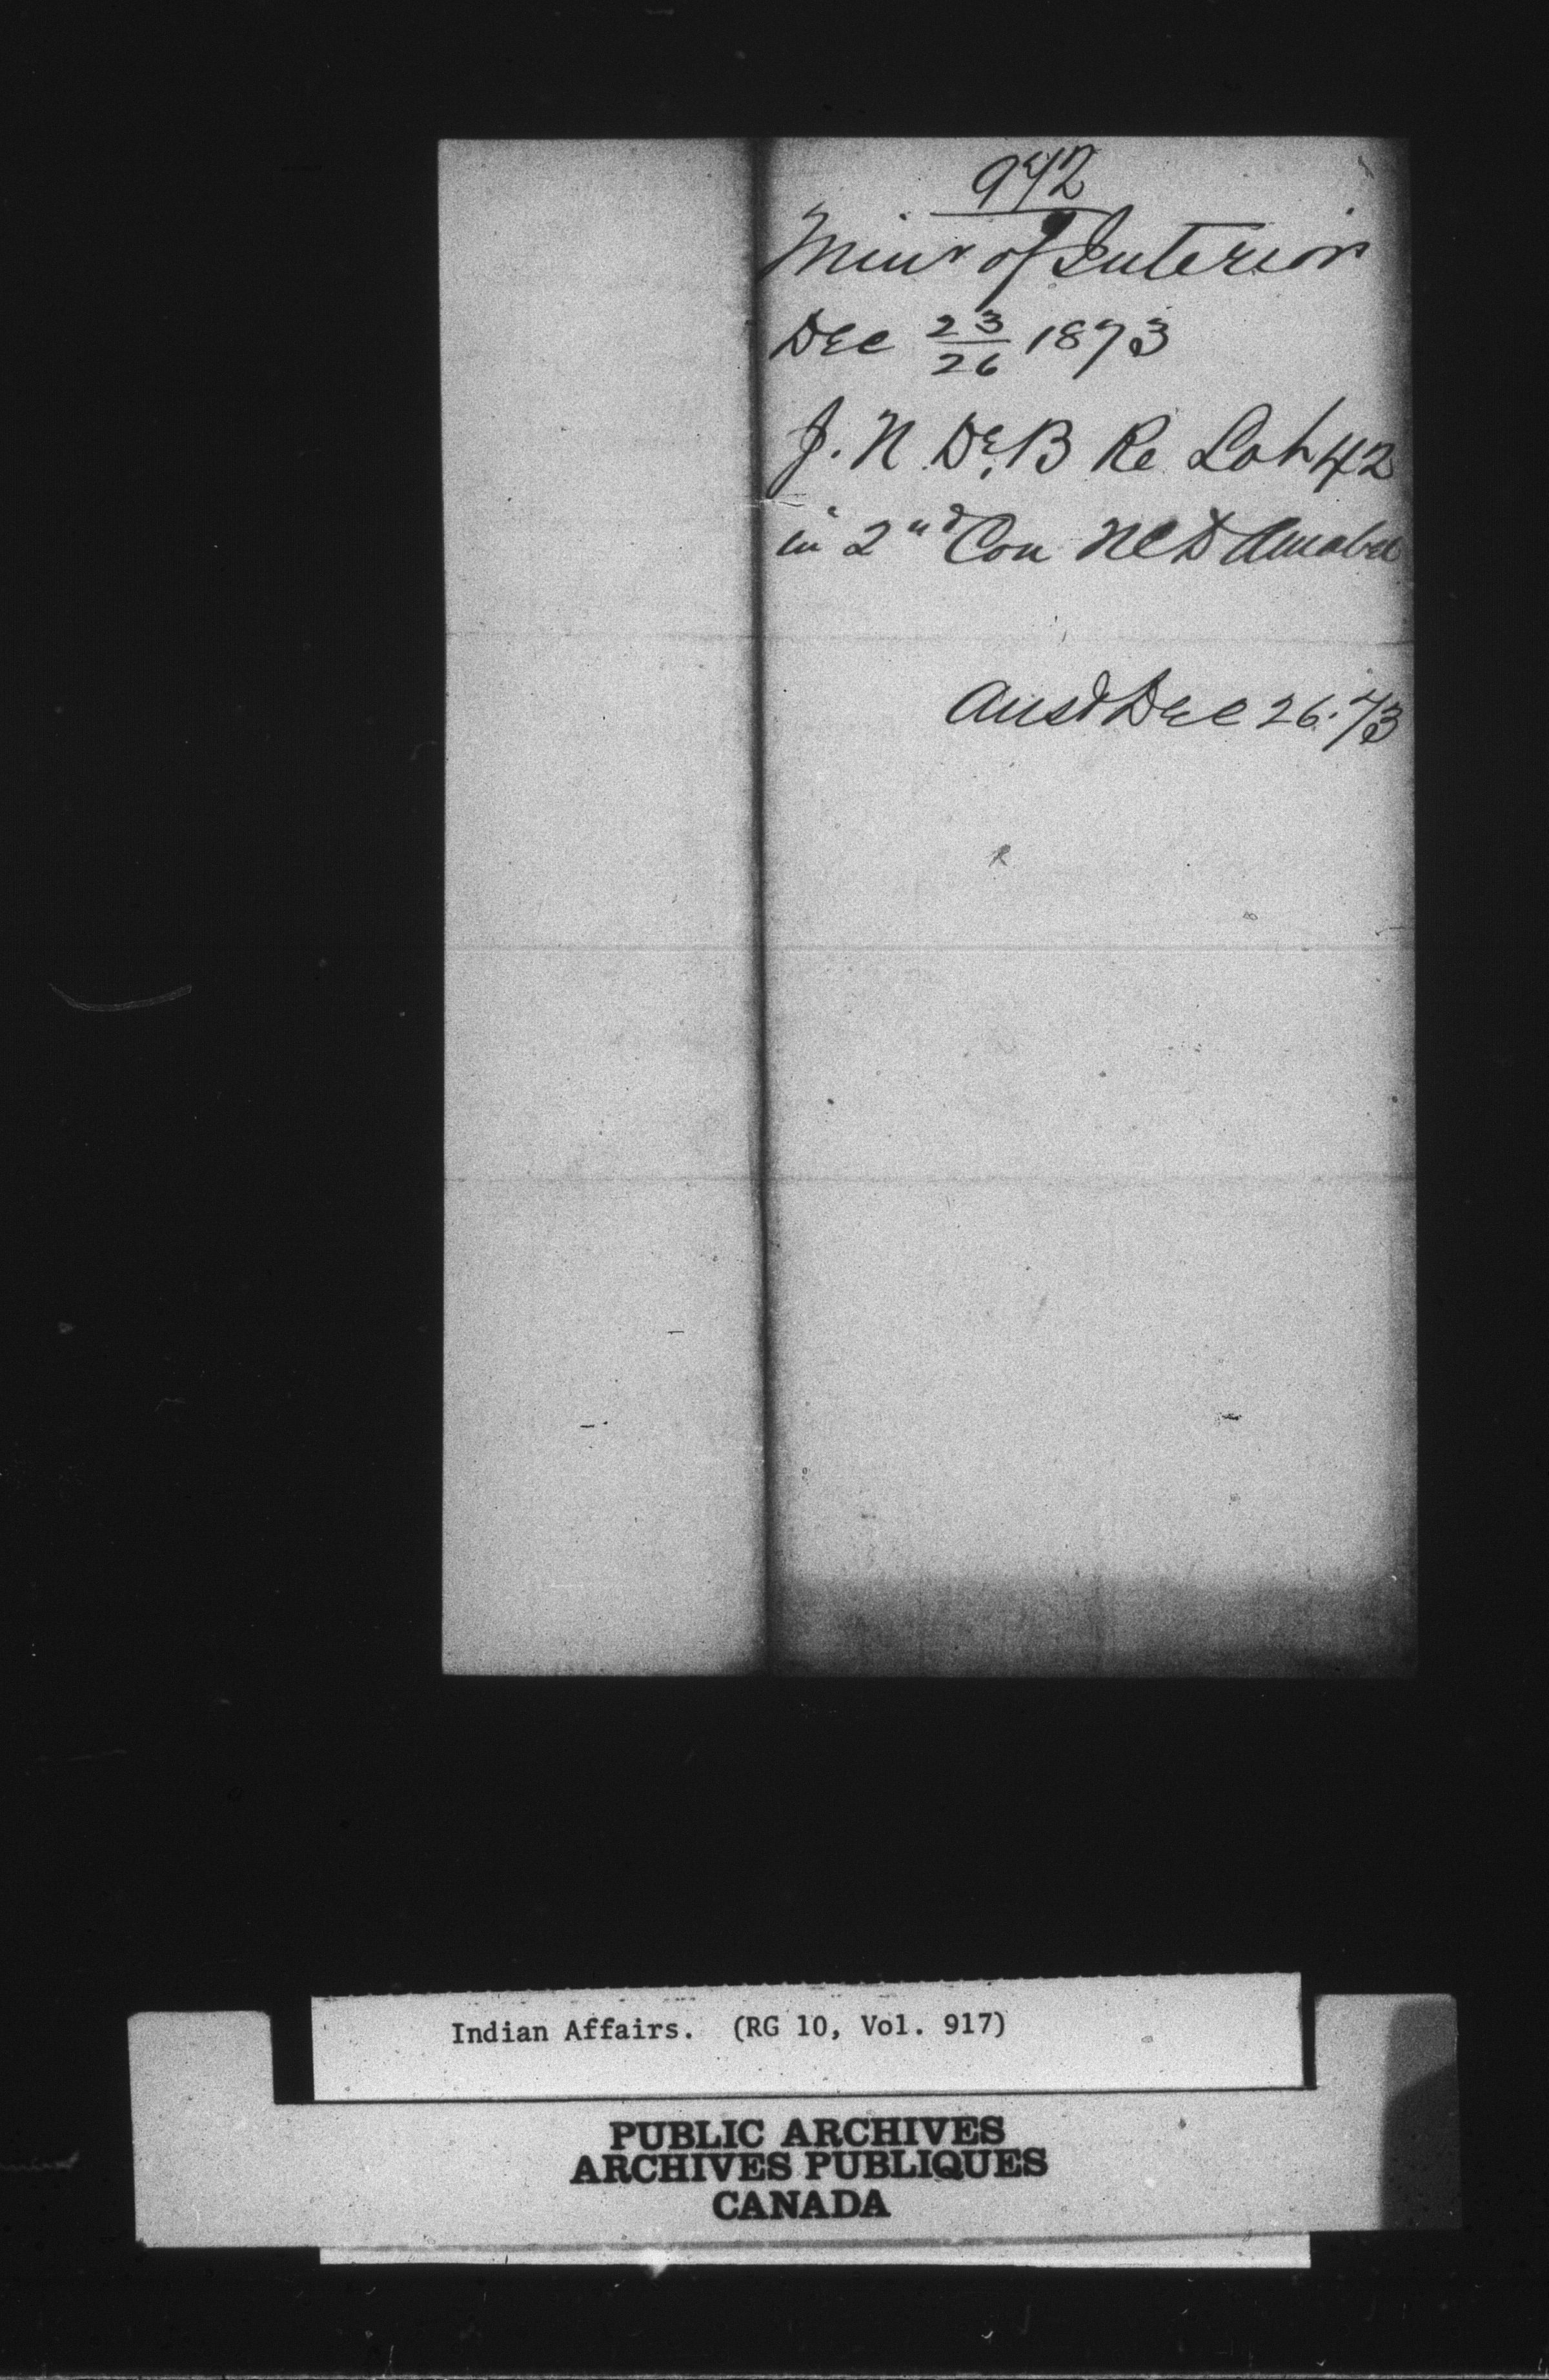 942
Minr of Interior
Dec 23/26 1873
J. N De B Re Lot 42
in 2nd Con NCD Amabel
Ansd Dec 26. 73
Indian Affairs. (RG 10, Vol. 917)
PUBLIC ARCHIVES
ARCHIVES PUBLIQUES
CANADA